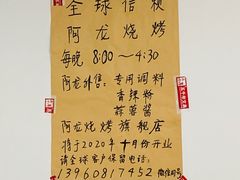 全球信梗
阿龙烧烤
每晚 8:00～4:30
阿龙外售: 专用调料
青辣粉
蒜蓉酱
阿龙烧烤旗舰店
将于2020年十月份开业
请全球客户保留电话:
13960817452 微信同号